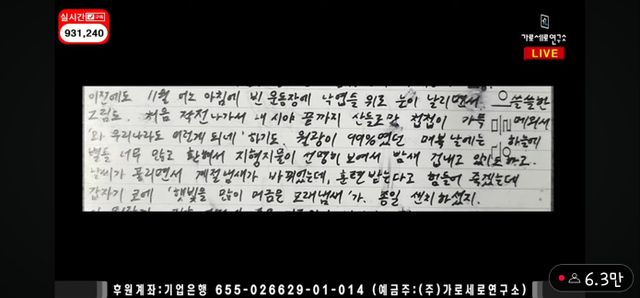 실시간 구독
931,240
가로세로연구소
LIVE
이전에도 11월 어느 아침에 빈 운동장에 낙엽들 위로 눈이 날리면서 으쓸쓸한
그림도. 처음 작전나가서 내 시야 끝까지 산등고랑 첩첩이 가득 메워서
'와 우리나라도 이렇게 되네' 하기도. 월광이 99%였던 매복 날에는 하늘에
별도 너무 많고 환해서 지형지물이 선명히 보여서 밤새 겁내고 있기도 하고.
날씨가 풀리면서 계절냄새가 바뀌었는데, 훈련 받는다고 힘들어 죽겠는데
갑자기 코에 '햇빛을 많이 머금은 모래냄새'가. 종일 센치하셨지.
6.3만
후원계좌:기업은행 655-026629-01-014 (예금주:(주)가로세로연구소)